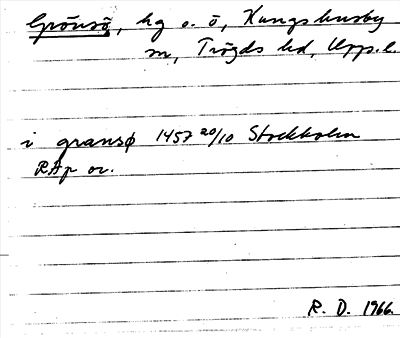 Grönsö, hg o. ö, Kungshusby
sn, Trögds hd, Upps.l.
i gransø 1457 20/10 Stockholm
RAp or.
R. D. 1966.